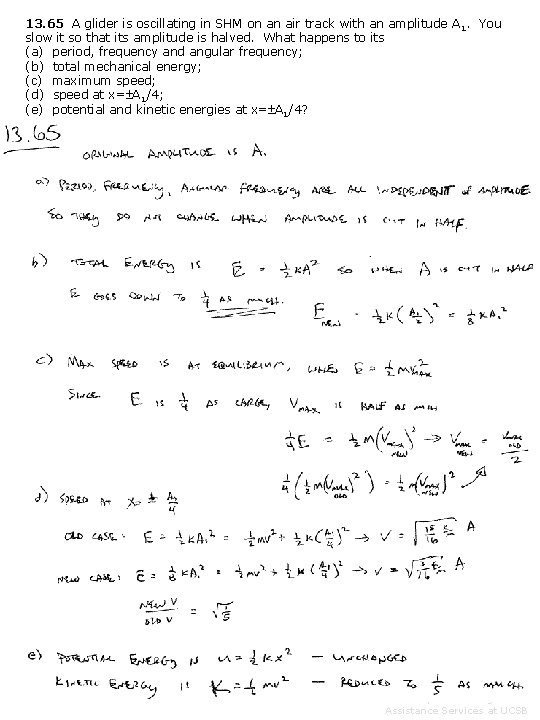 13.65 A glider is oscillating in SHM on an air track with an amplitude A₁. You
slow it so that its amplitude is halved. What happens to its
(a) period, frequency and angular frequency;
(b) total mechanical energy;
(c) maximum speed;
(d) speed at x=±A₁/4;
(e) potential and kinetic energies at x=±A₁/4?
13.65
ORIGINAL AMPLITUDE IS A.
a) PERIOD, FREQUENCY, ANGULAR FREQUENCY ARE ALL INDEPENDENT of AMPLITUDE
SO THEY DO NOT CHANGE WHEN AMPLITUDE IS CUT IN HALF.
b) TOTAL ENERGY IS E = ½kA² SO WHEN A IS CUT IN HALF
E GOES DOWN TO ¼ AS MUCH.
E_NEW = ½k(A₁/2)² = ⅛kA₁²
c) MAX SPEED IS AT EQUILIBRIUM, WHEN E = ½mV²_MAX
SINCE E IS ¼ AS LARGE, V_MAX IS HALF AS MUCH
¼E = ½m(V_MAX NEW)² → V_MAX NEW = V_MAX OLD / 2
¼(½m(V_MAX OLD)²) = ½m(V_MAX NEW)²
d) SPEED AT X = ± A₁/4
OLD CASE: E = ½kA₁² = ½mv² + ½k(A₁/4)² → v = √(15/16 k/m) A
NEW CASE: E = ⅛kA₁² = ½mv² + ½k(A₁/4)² → v = √(3/16 k/m) A
NEW V / OLD V = √(1/5)
e) POTENTIAL ENERGY IS U = ½kx² — UNCHANGED
KINETIC ENERGY IS K = ½mv² — REDUCED TO 1/5 AS MUCH.
Assistance Services at UCSB